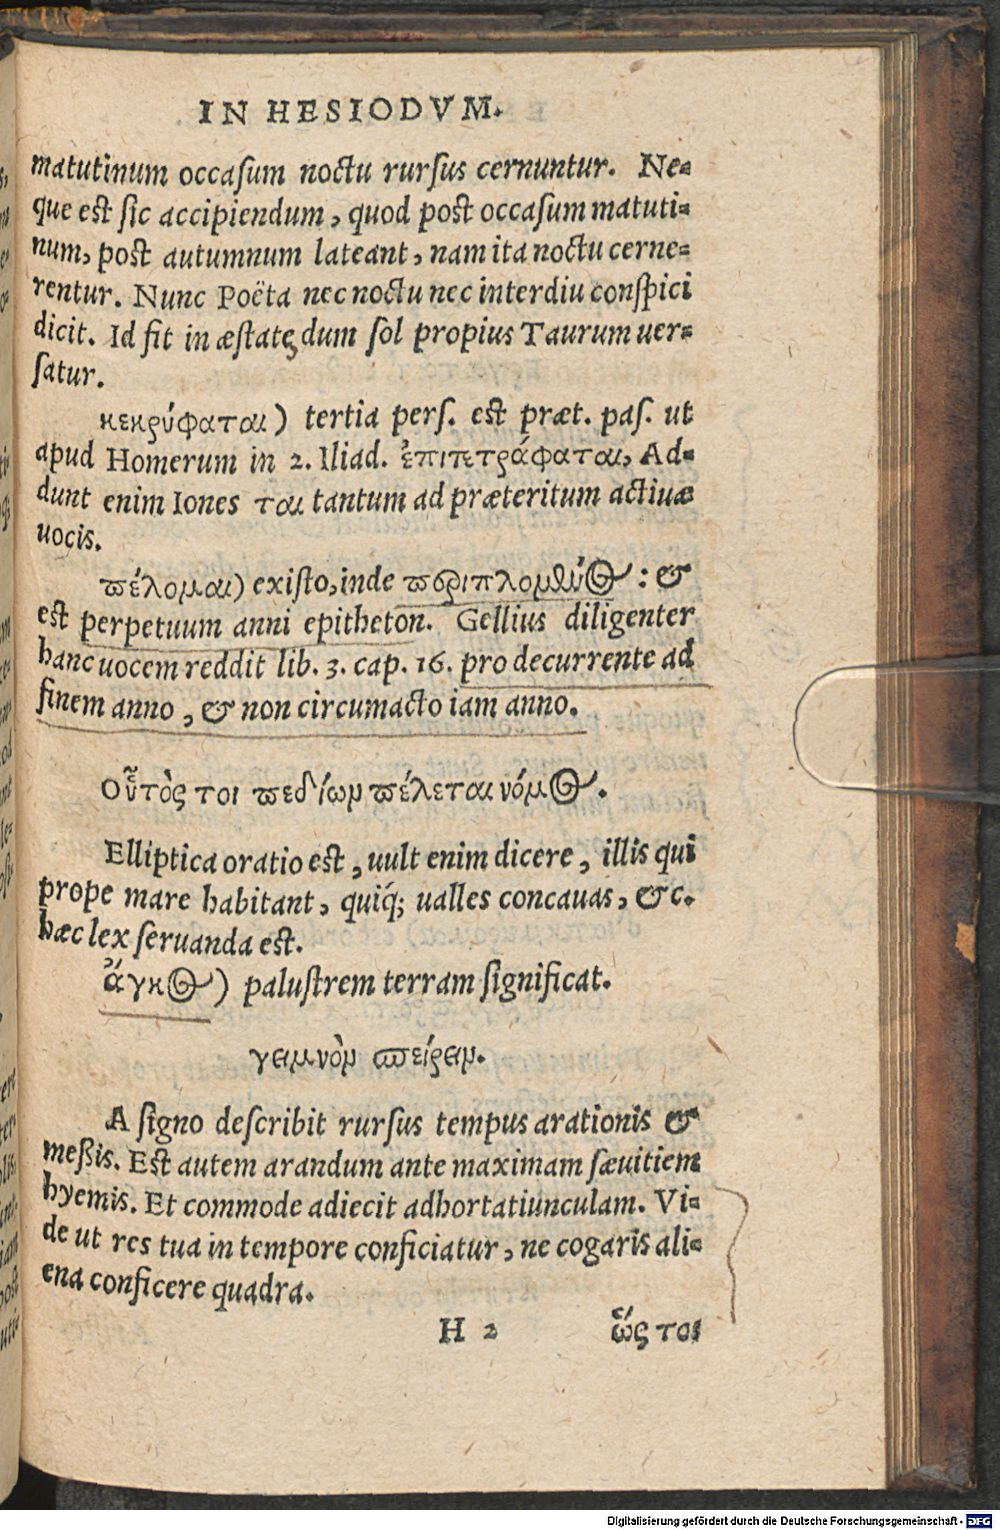 IN HESIODVM.
matutinum occasum noctu rursus cernuntur. Ne-
que est sic accipiendum, quod post occasum matuti-
num, post autumnum lateant, nam ita noctu cerne-
rentur. Nunc Poëta nec noctu nec interdiu conspici
dicit. Id fit in æstate, dum sol propius Taurum uer-
satur.
κεκρύφαται) tertia pers. est præt. pas. ut
apud Homerum in 2. Iliad. ἐπιπετράφαται, Ad-
dunt enim Iones ται tantum ad præteritum actiuæ
uocis.
πέλομαι) existo, inde περιπλομένος: &
est perpetuum anni epitheton. Gellius diligenter
hanc uocem reddit lib. 3. cap. 16. pro decurrente ad
finem anno, & non circumacto iam anno.
Οὗτὸς τοι πεδίων πέλεται νόμος.
Elliptica oratio est, uult enim dicere, illis qui
prope mare habitant, quiq́; ualles concauas, &c.
hæc lex seruanda est.
ἄγκος) palustrem terram significat.
γειμνὸν σπείρειν.
A signo describit rursus tempus arationis &
meßis. Est autem arandum ante maximam sæuitiem
hyemis. Et commode adiecit adhortatiunculam. Vi-
de ut res tua in tempore conficiatur, ne cogaris ali-
ena conficere quadra.
H 2 ὥς τοι
Digitalisierung gefördert durch die Deutsche Forschungsgemeinschaft - DFG